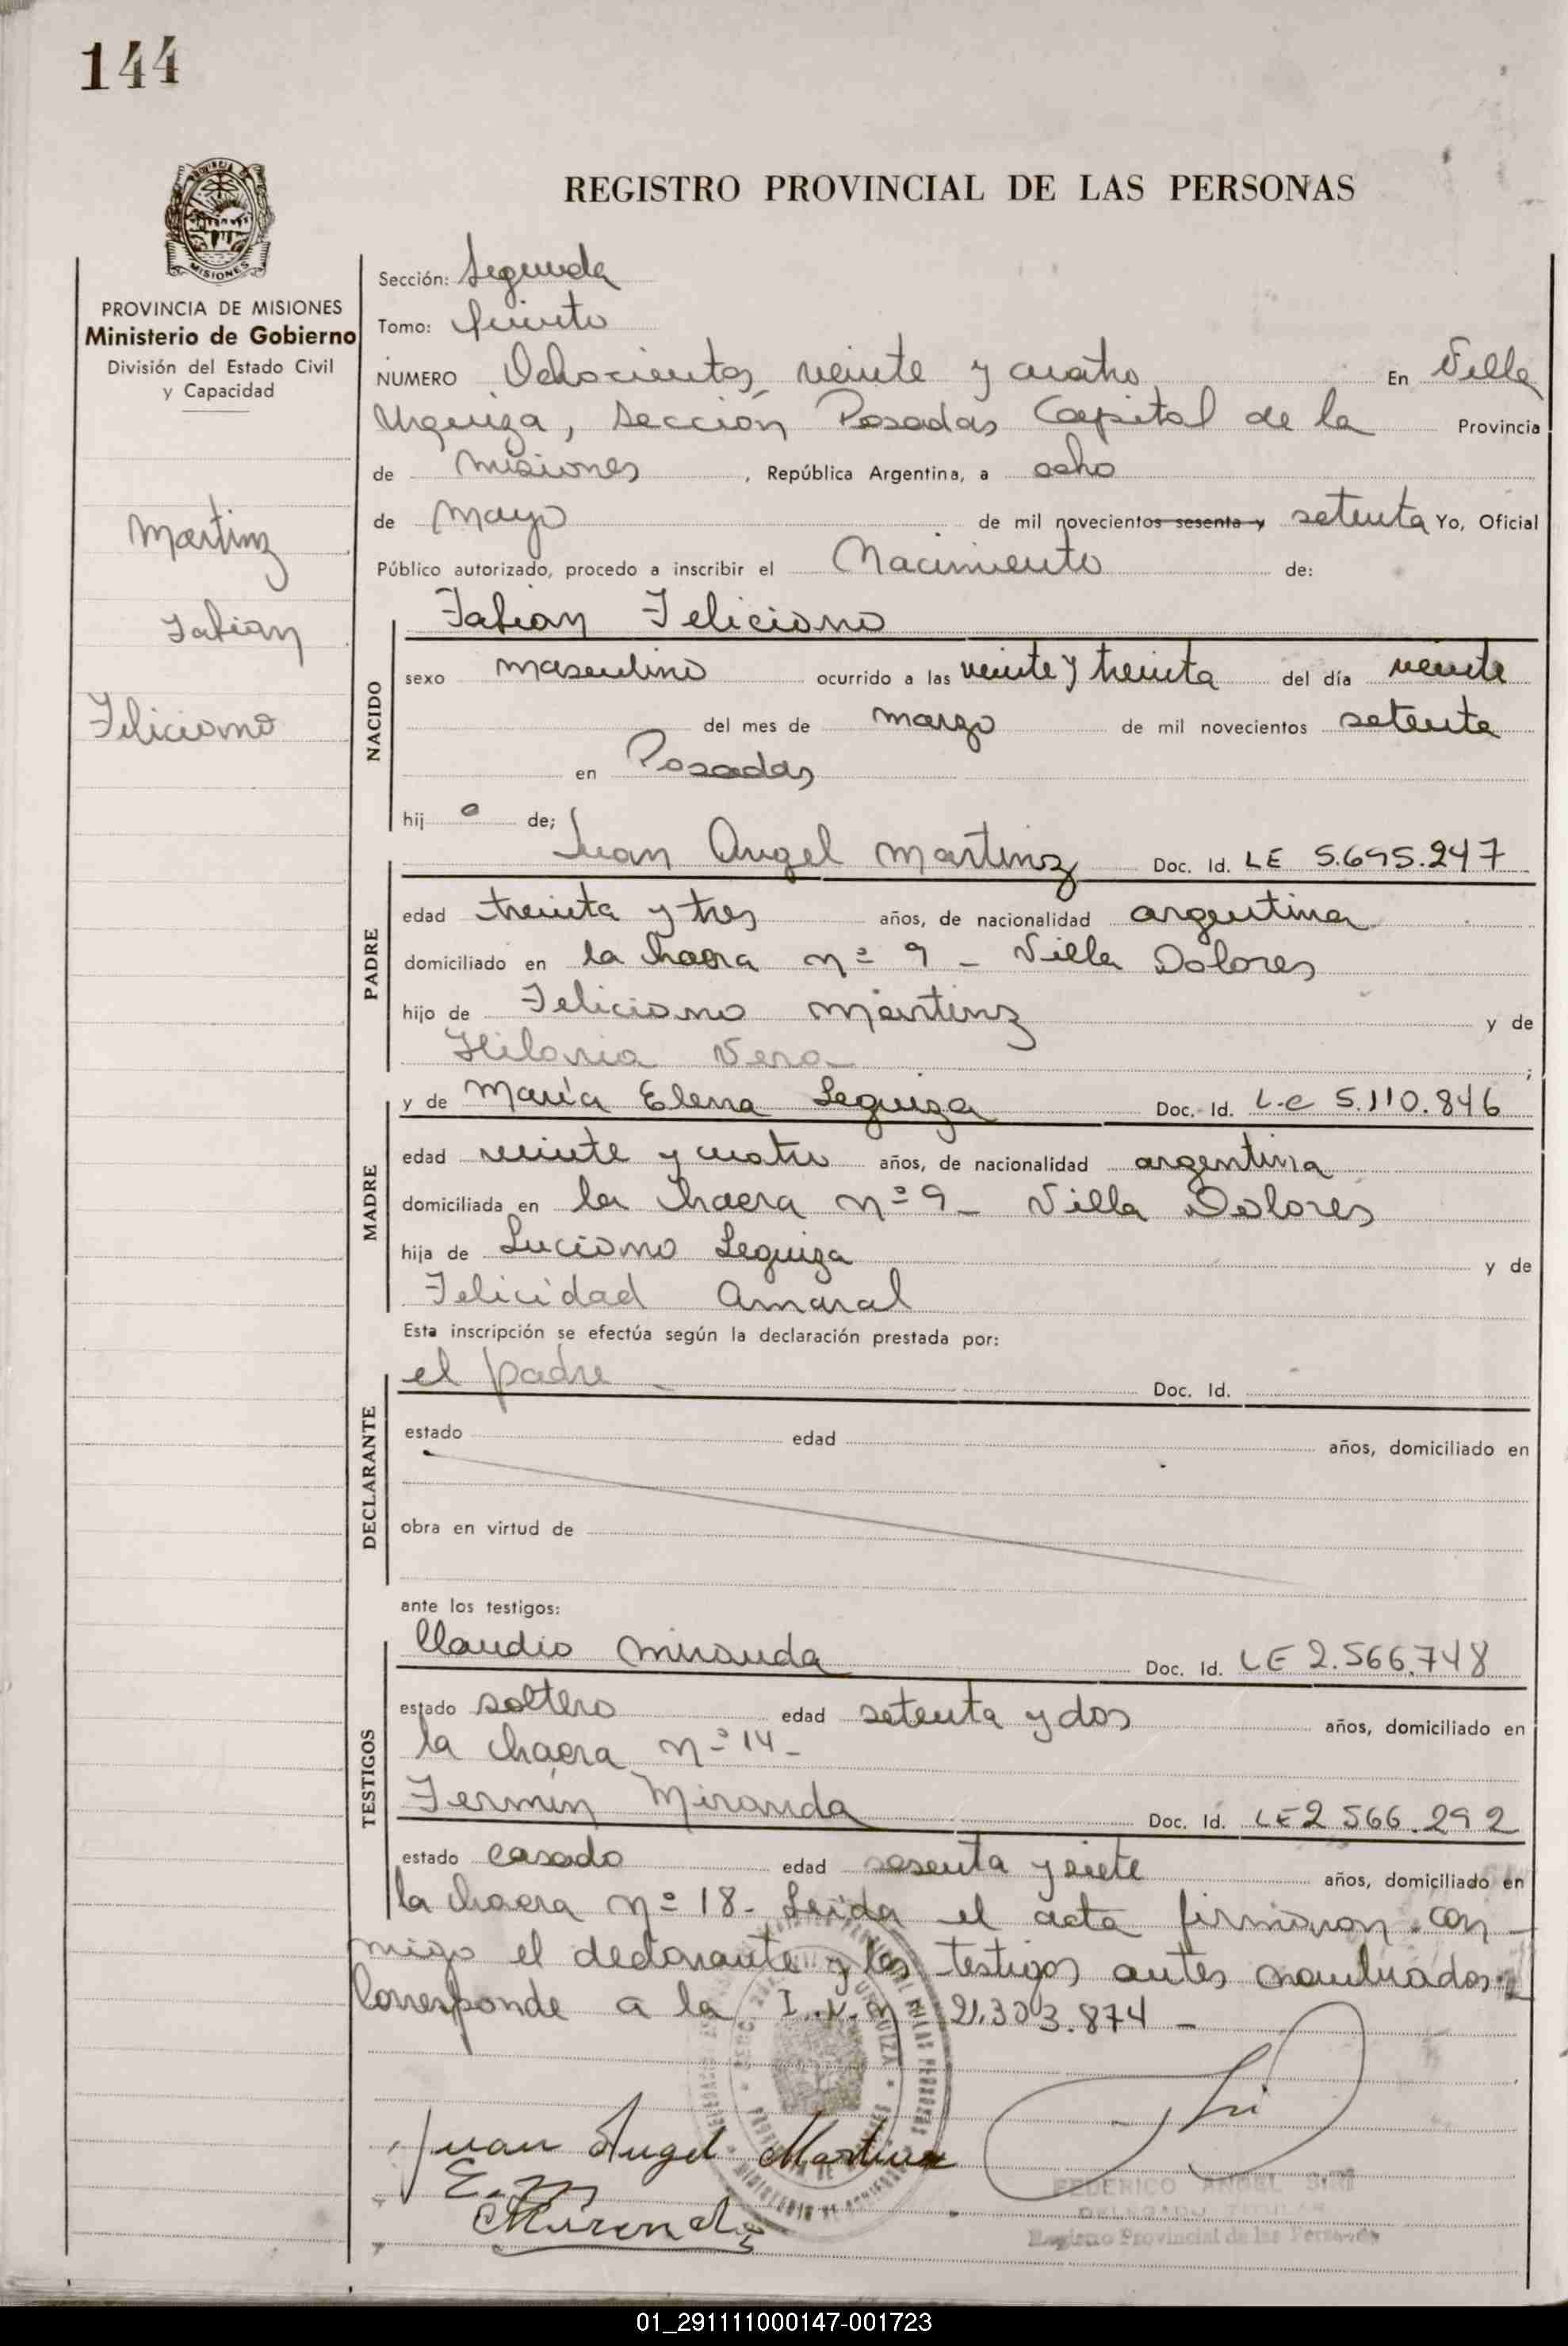 144
REGISTRO PROVINCIAL DE LAS PERSONAS
MISIONES
PROVINCIA DE MISIONES
Ministerio de Gobierno
División del Estado Civil
y Capacidad
Martinz
Fabian
Feliciano
Sección: Segunda
Tomo: Quinto
NUMERO Ochocientos veinte y cuatro En Villa
Urquiza, Sección Posadas Capital de la Provincia
de Misiones, República Argentina, a ocho
de Mayo de mil novecientos sesenta y setenta Yo, Oficial
Público autorizado, procedo a inscribir el Nacimiento de:
NACIDO
Fabian Feliciano
sexo masculino ocurrido a las veinte y treinta del día veinte
del mes de marzo de mil novecientos setenta
en Posadas
hij o de;
PADRE
Juan Angel Martinz Doc. Id. LE 5.695.247
edad treinta y tres años, de nacionalidad argentina
domiciliado en la chacra nº 9 - Villa Dolores
hijo de Feliciano Martinz y de
Hilaria Vera ;
MADRE
y de María Elena Leguiza Doc. Id. L.C 5.110.846
edad veinte y cuatro años, de nacionalidad argentina
domiciliada en la chacra nº 9 - Villa Dolores
hija de Luciano Leguiza y de
Felicidad Amaral
Esta inscripción se efectúa según la declaración prestada por:
DECLARANTE
el padre - Doc. Id.
estado edad años, domiciliado en
obra en virtud de
ante los testigos:
TESTIGOS
Claudio Miranda Doc. Id. LE 2.566.748
estado soltero edad setenta y dos años, domiciliado en
la chacra nº 14 -
Fermín Miranda Doc. Id. LE 2.566.292
estado casado edad sesenta y siete años, domiciliado en
la chacra nº 18 - Leída el acta firmaron con-
migo el declarante y los testigos antes nombrados.
Corresponde a la 21.303.874 -
Juan Angel Martinz
FEDERICO ANGEL SIRI
DELEGADO TITULAR
Registro Provincial de las Personas
01_291111000147-001723